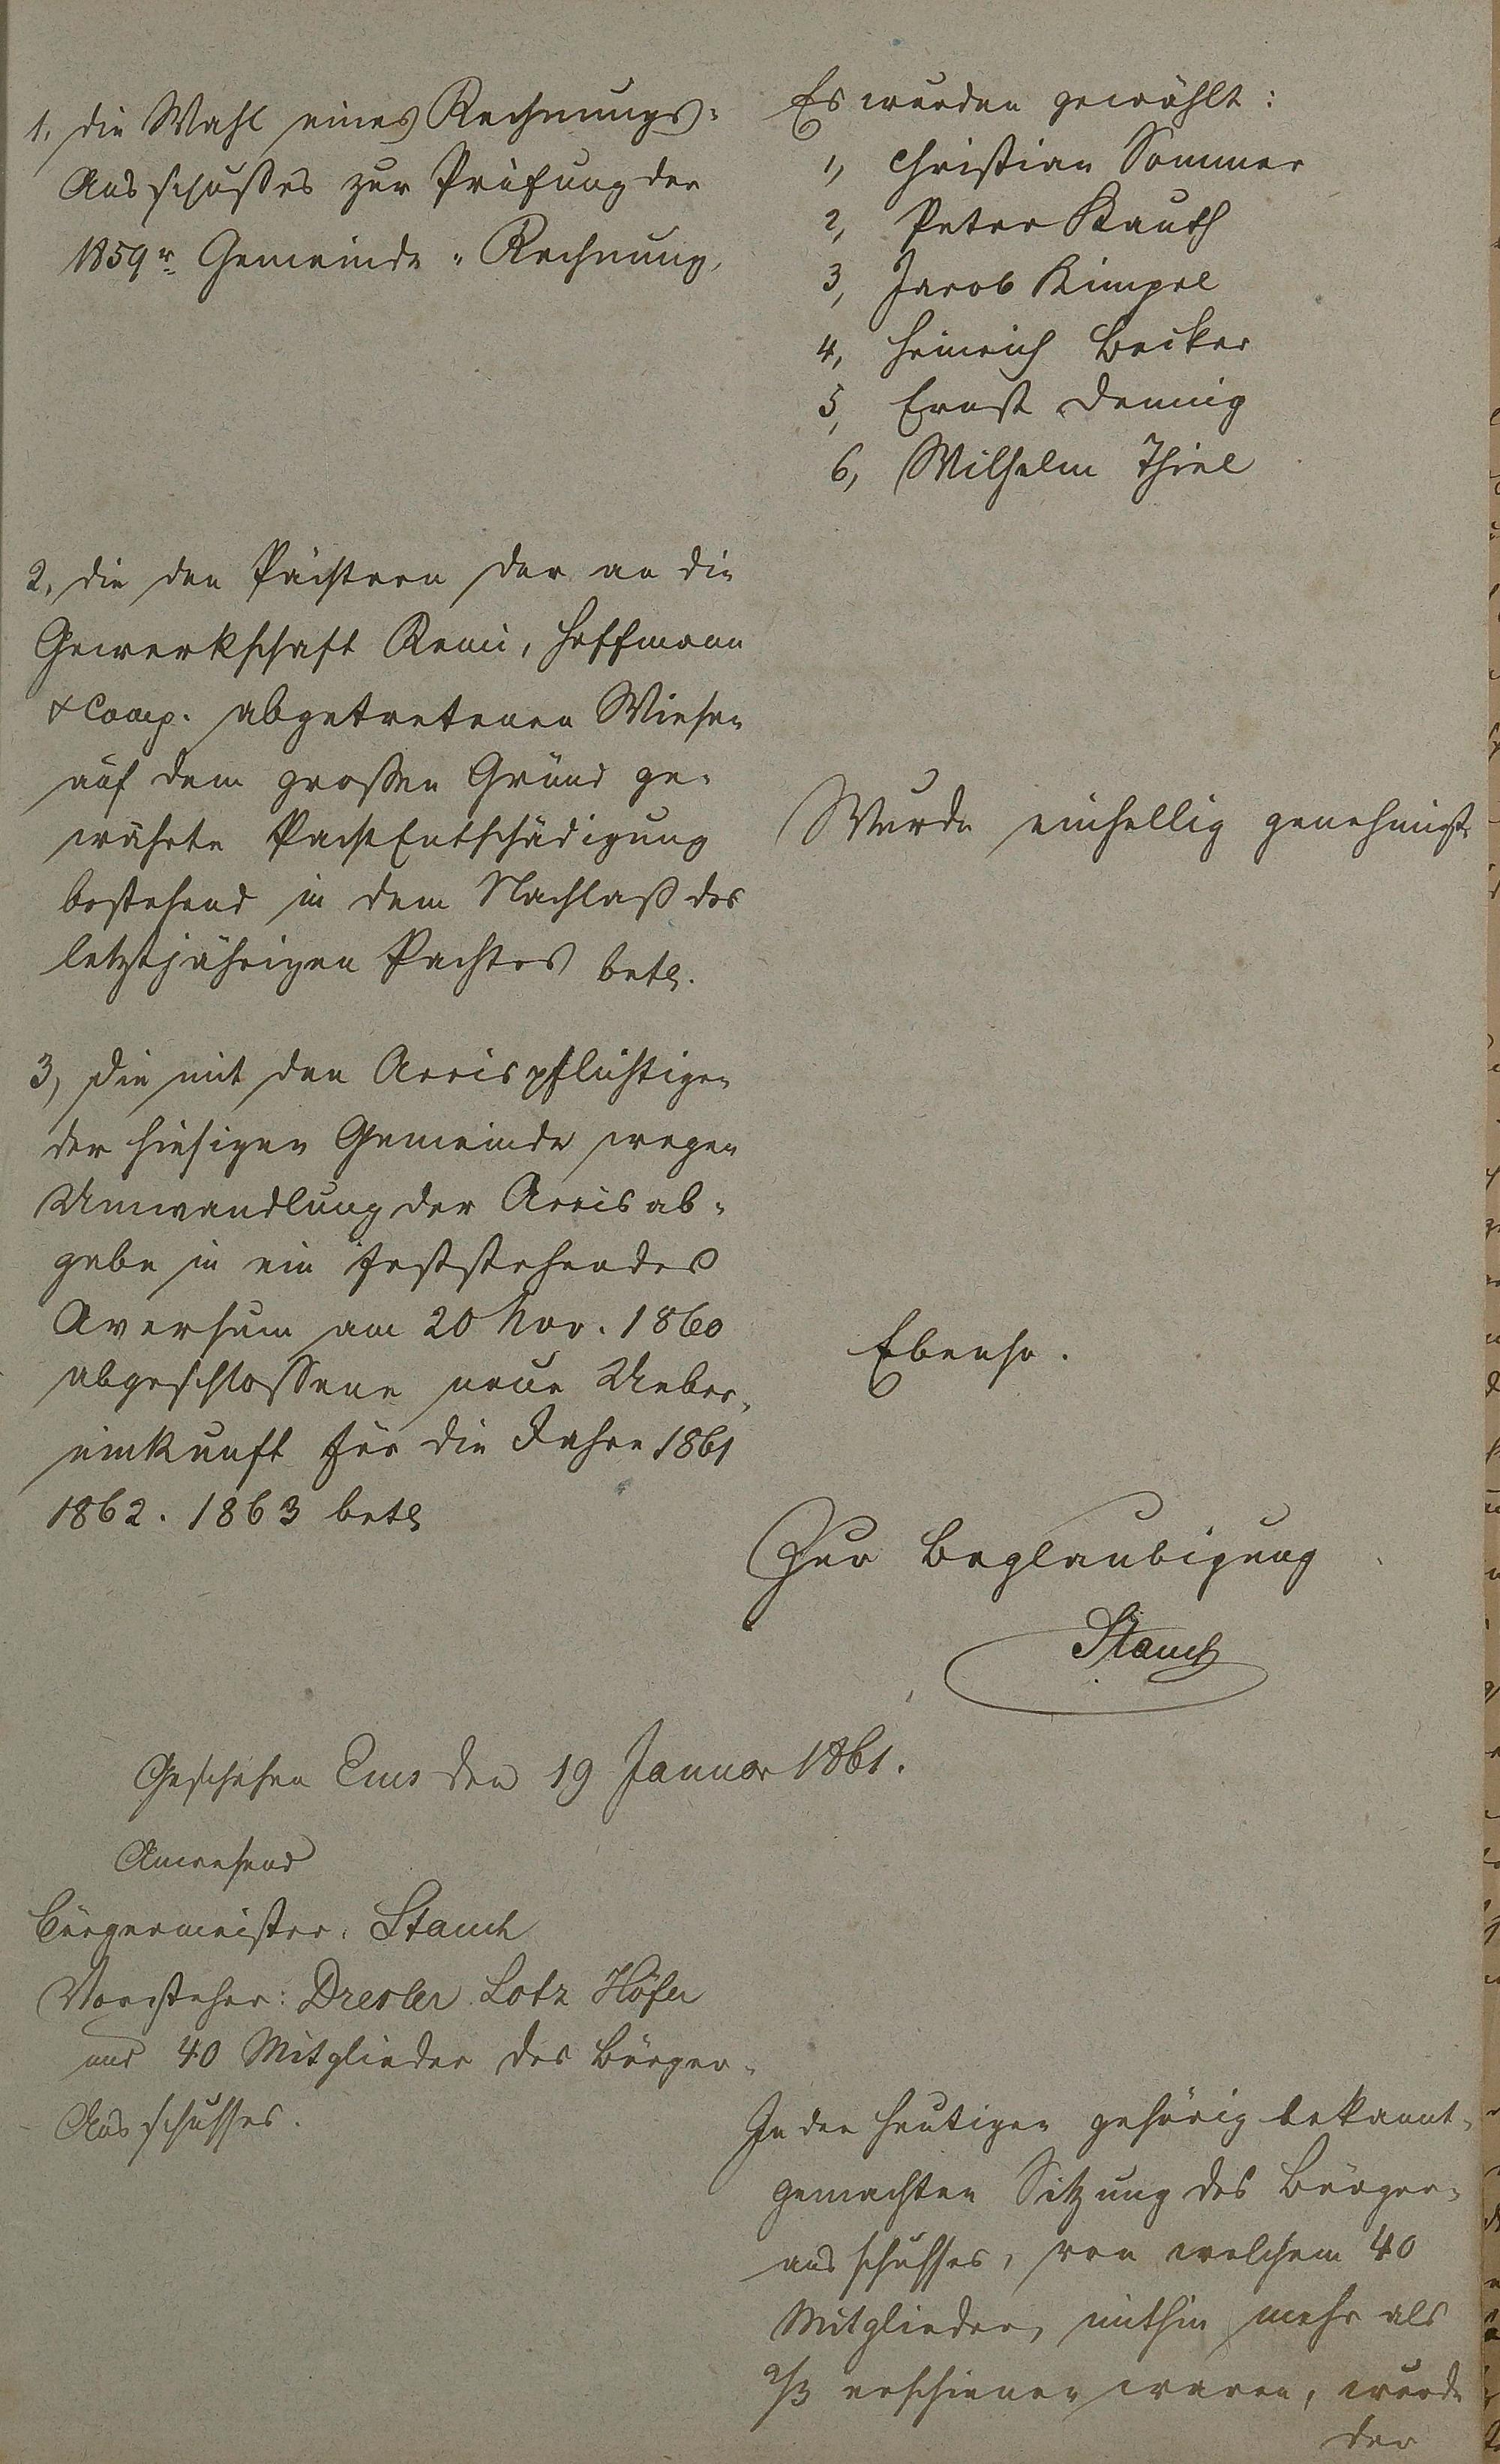 1, die Wahl eines Rechnungs-
Ausschußes zur Prüfung der
1859r Gemeinde-Rechnung,
Es wurden gewählt:
1, Christian Sommer
2, Peter Kauth
3, Jacob Kimpel
4, Heinrich Becker
5, Ernst Dennig
6, Wilhelm Thiel
2, die den Pächtern der an die
Gewerkschaft Remi, Hoffmann
& Comp. abgetretenen Wiesen
auf dem großen Grund ge-
währte PachtEntschädigung
bestehend in dem Nachlaß des
letztjährigen Pachtes betr.
Wurde einhellig genehmigt.
3, die mit den Accispflichtigen
der hiesigen Gemeinde wegen
Umwandlung der Accisab-
gabe in ein feststehendes
Aversum am 20 Nov. 1860
abgeschlossene neue Ueber-
einkunft für die Jahre 1861
1862. 1863 betr
Ebenso.
Zur Beglaubigung
Stauch
Geschehen Ems den 19 Januar 1861.
Anwesend
Bürgermeister: Stauch
Vorsteher: Dresler Lotz Höfer
und 40 Mitglieder des Bürger-
Ausschusses.
In der heutigen gehörig bekannt-
gemachten Sitzung des Bürger-
ausschusses, von welchem 40
Mitglieder, mithin mehr als
2/3 erschienen waren, wurde
der